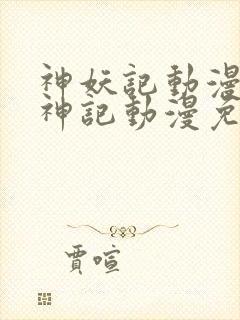 神妖記動漫
神記動漫免
賈喧